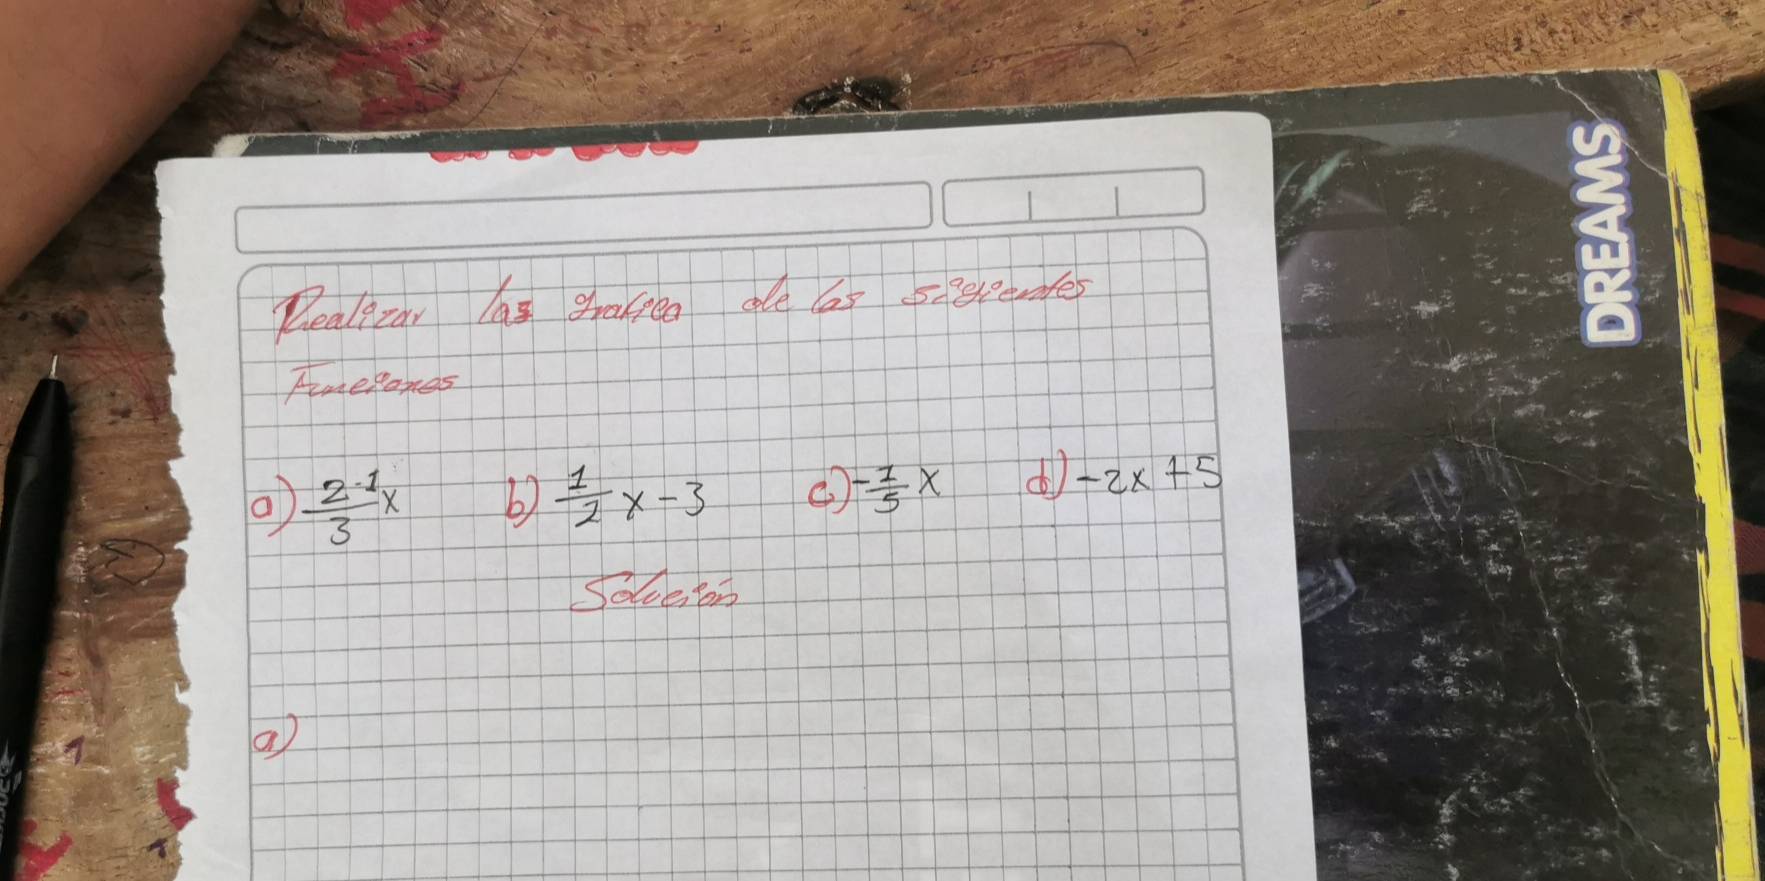 Realizar las grafica de las sigientes
Funciones
a) \frac{2-1}{3}x b) \frac{1}{2}x-3 c) -\frac{1}{5}x d) -2x+5
Solución
a)
DREAMS